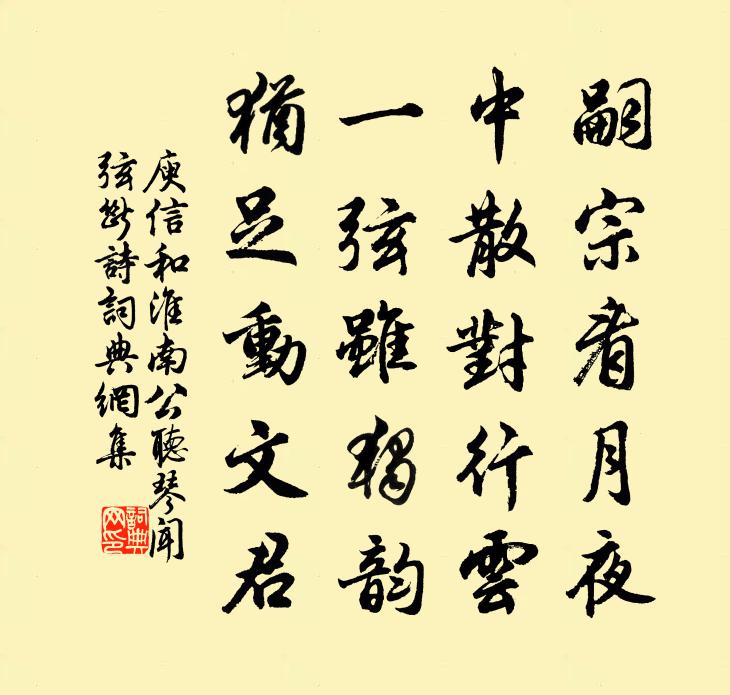 嗣宗看月夜
中散對行雲
一弦雖獨韵
猶足動文君
庾信和淮南公聽琴聞
弦斷詩詞典網集
詞典
网印